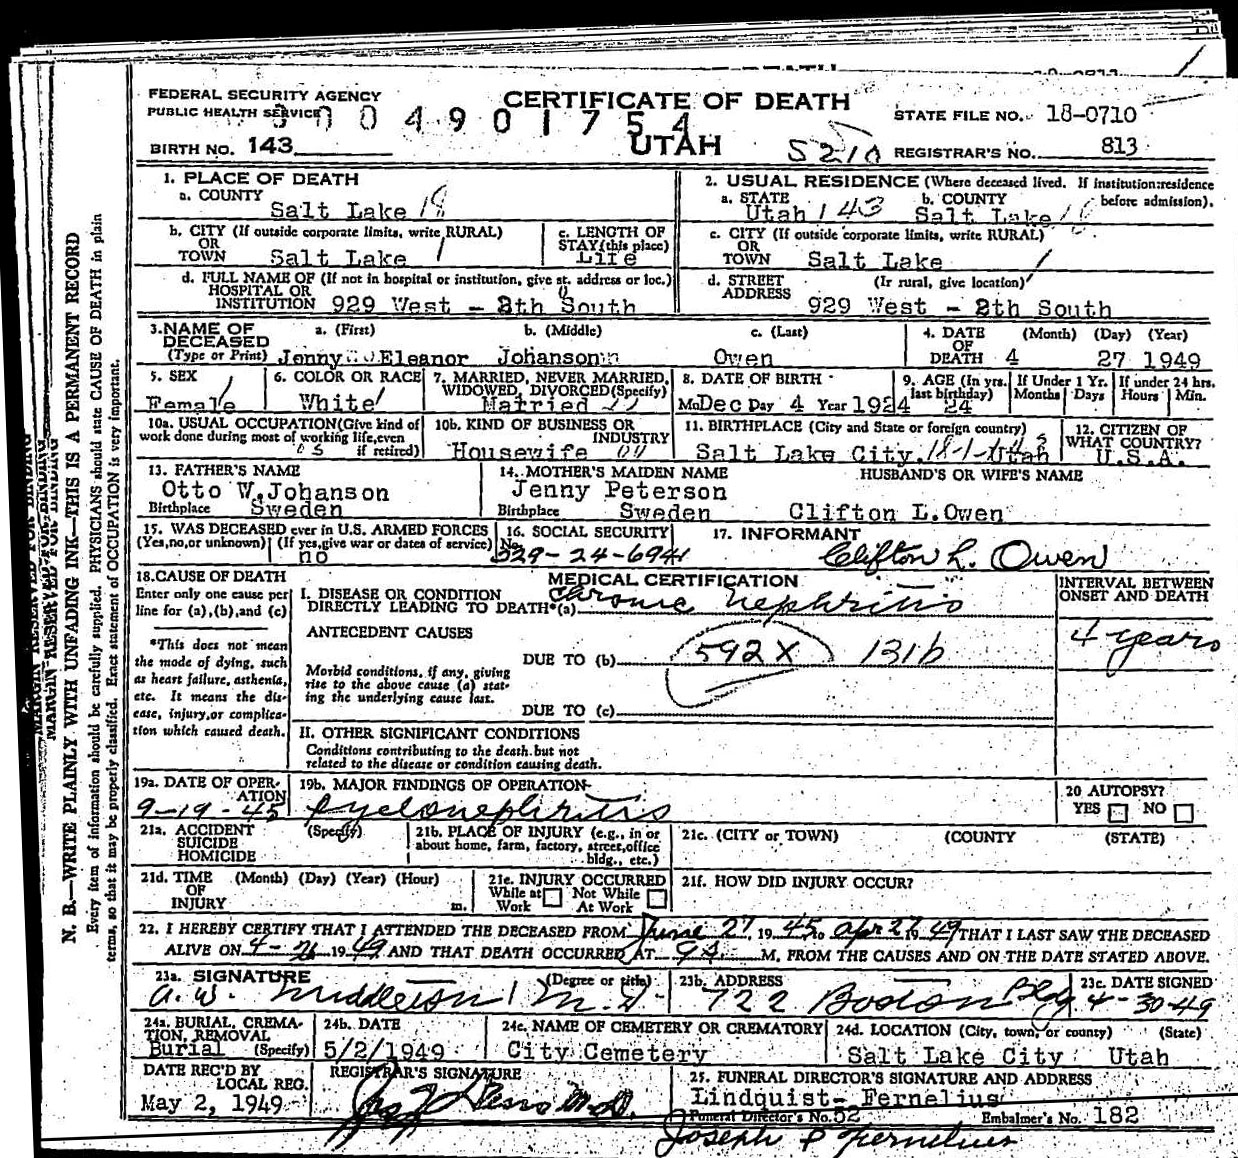 FEDERAL SECURITY AGENCY
PUBLIC HEALTH SERVICE
CERTIFICATE OF DEATH
UTAH
STATE FILE NO. 18-0710
0 4 9 0 1 7 5 4
BIRTH NO. 143
5210
REGISTRAR'S NO. 813
1. PLACE OF DEATH
a. COUNTY
Salt Lake 18
2. USUAL RESIDENCE (Where deceased lived. If institution:residence before admission).
a. STATE b. COUNTY
Utah 143 Salt Lake
b. CITY (If outside corporate limits, write RURAL)
OR
TOWN Salt Lake
c. LENGTH OF
STAY (this place)
Life
c. CITY (If outside corporate limits, write RURAL)
OR
TOWN Salt Lake
d. FULL NAME OF (If not in hospital or institution, give st. address or loc.)
HOSPITAL OR
INSTITUTION 929 West - 8th South
d. STREET (Ir rural, give location)
ADDRESS 929 West - 8th South
3. NAME OF DECEASED
(Type or Print)
a. (First) b. (Middle) c. (Last)
Jenny Eleanor Johanson Owen
4. DATE OF DEATH (Month) (Day) (Year)
4 27 1949
5. SEX
Female
6. COLOR OR RACE
White
7. MARRIED, NEVER MARRIED,
WIDOWED, DIVORCED (Specify)
Married
8. DATE OF BIRTH
Mo Dec Day 4 Year 1924
9. AGE (In yrs. last birthday)
24
If Under 1 Yr. Months Days
If under 24 hrs. Hours Min.
10a. USUAL OCCUPATION (Give kind of
work done during most of working life, even
if retired)
10b. KIND OF BUSINESS OR
INDUSTRY
Housewife
11. BIRTHPLACE (City and State or foreign country)
Salt Lake City, Utah
12. CITIZEN OF
WHAT COUNTRY?
U.S.A.
13. FATHER'S NAME
Otto W. Johanson
Birthplace Sweden
14. MOTHER'S MAIDEN NAME
Jenny Peterson
Birthplace Sweden
HUSBAND'S OR WIFE'S NAME
Clifton L. Owen
15. WAS DECEASED ever in U.S. ARMED FORCES
(Yes,no,or unknown) (If yes,give war or dates of service)
no
16. SOCIAL SECURITY
No. 529-24-6941
17. INFORMANT
Clifton L. Owen
18. CAUSE OF DEATH
Enter only one cause per
line for (a),(b),and (c)
*This does not mean
the mode of dying, such
as heart failure, asthenia,
etc. It means the dis-
ease, injury,or complica-
tion which caused death.
MEDICAL CERTIFICATION
I. DISEASE OR CONDITION
DIRECTLY LEADING TO DEATH*(a) Chronic nephritis
ANTECEDENT CAUSES
DUE TO (b) 592X 131b
Morbid conditions, if any, giving
rise to the above cause (a) stat-
ing the underlying cause last.
DUE TO (c)
INTERVAL BETWEEN
ONSET AND DEATH
4 years
II. OTHER SIGNIFICANT CONDITIONS
Conditions contributing to the death but not
related to the disease or condition causing death.
19a. DATE OF OPER-
ATION
9-19-45
19b. MAJOR FINDINGS OF OPERATION
pyelonephritis
20 AUTOPSY?
YES NO
21a. ACCIDENT (Specify)
SUICIDE
HOMICIDE
21b. PLACE OF INJURY (e.g., in or
about home, farm, factory, street, office
bldg., etc.)
21c. (CITY or TOWN) (COUNTY) (STATE)
21d. TIME (Month) (Day) (Year) (Hour)
OF
INJURY m.
21e. INJURY OCCURRED
While at Work Not While At Work
21f. HOW DID INJURY OCCUR?
22. I HEREBY CERTIFY THAT I ATTENDED THE DECEASED FROM June 27, 1945 to Apr 27 1949 THAT I LAST SAW THE DECEASED
ALIVE ON 4-26 1949 AND THAT DEATH OCCURRED AT 9 A. M. FROM THE CAUSES AND ON THE DATE STATED ABOVE.
23a. SIGNATURE (Degree or title)
A. W. Middleton M.D.
23b. ADDRESS
722 Boston Bldg
23c. DATE SIGNED
4-30-49
24a. BURIAL, CREMA-
TION, REMOVAL
Burial (Specify)
24b. DATE
5/2/1949
24c. NAME OF CEMETERY OR CREMATORY
City Cemetery
24d. LOCATION (City, town, or county) (State)
Salt Lake City Utah
DATE REC'D BY
LOCAL REG.
May 2, 1949
REGISTRAR'S SIGNATURE
M.D.
25. FUNERAL DIRECTOR'S SIGNATURE AND ADDRESS
Lindquist- Fernelius
Funeral Director's No. 52 Embalmer's No. 182
Joseph P Fernelius
MARGIN RESERVED FOR BINDING
N. B.—WRITE PLAINLY WITH UNFADING INK—THIS IS A PERMANENT RECORD
Every item of information should be carefully supplied. PHYSICIANS should state CAUSE OF DEATH in plain
terms, so that it may be properly classified. Exact statement of OCCUPATION is very important.